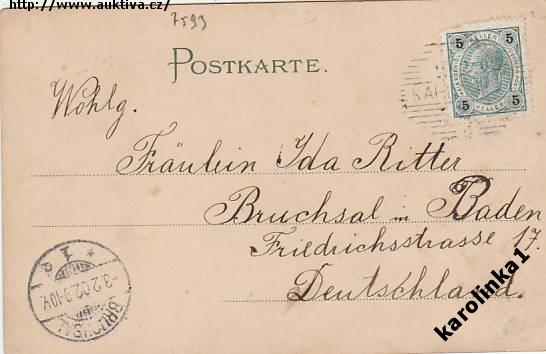 http://www.auktiva.cz/
7593
POSTKARTE.
5 HELLER 5
5 HELLER 5
KAR
Wohlg.
Fräulein Ida Ritter
Bruchsal in Baden
Friedrichsstrasse 17.
Deutschland.
* 1 P
-3.2.02.9-10V.
BRUCHSAL
karolinka1